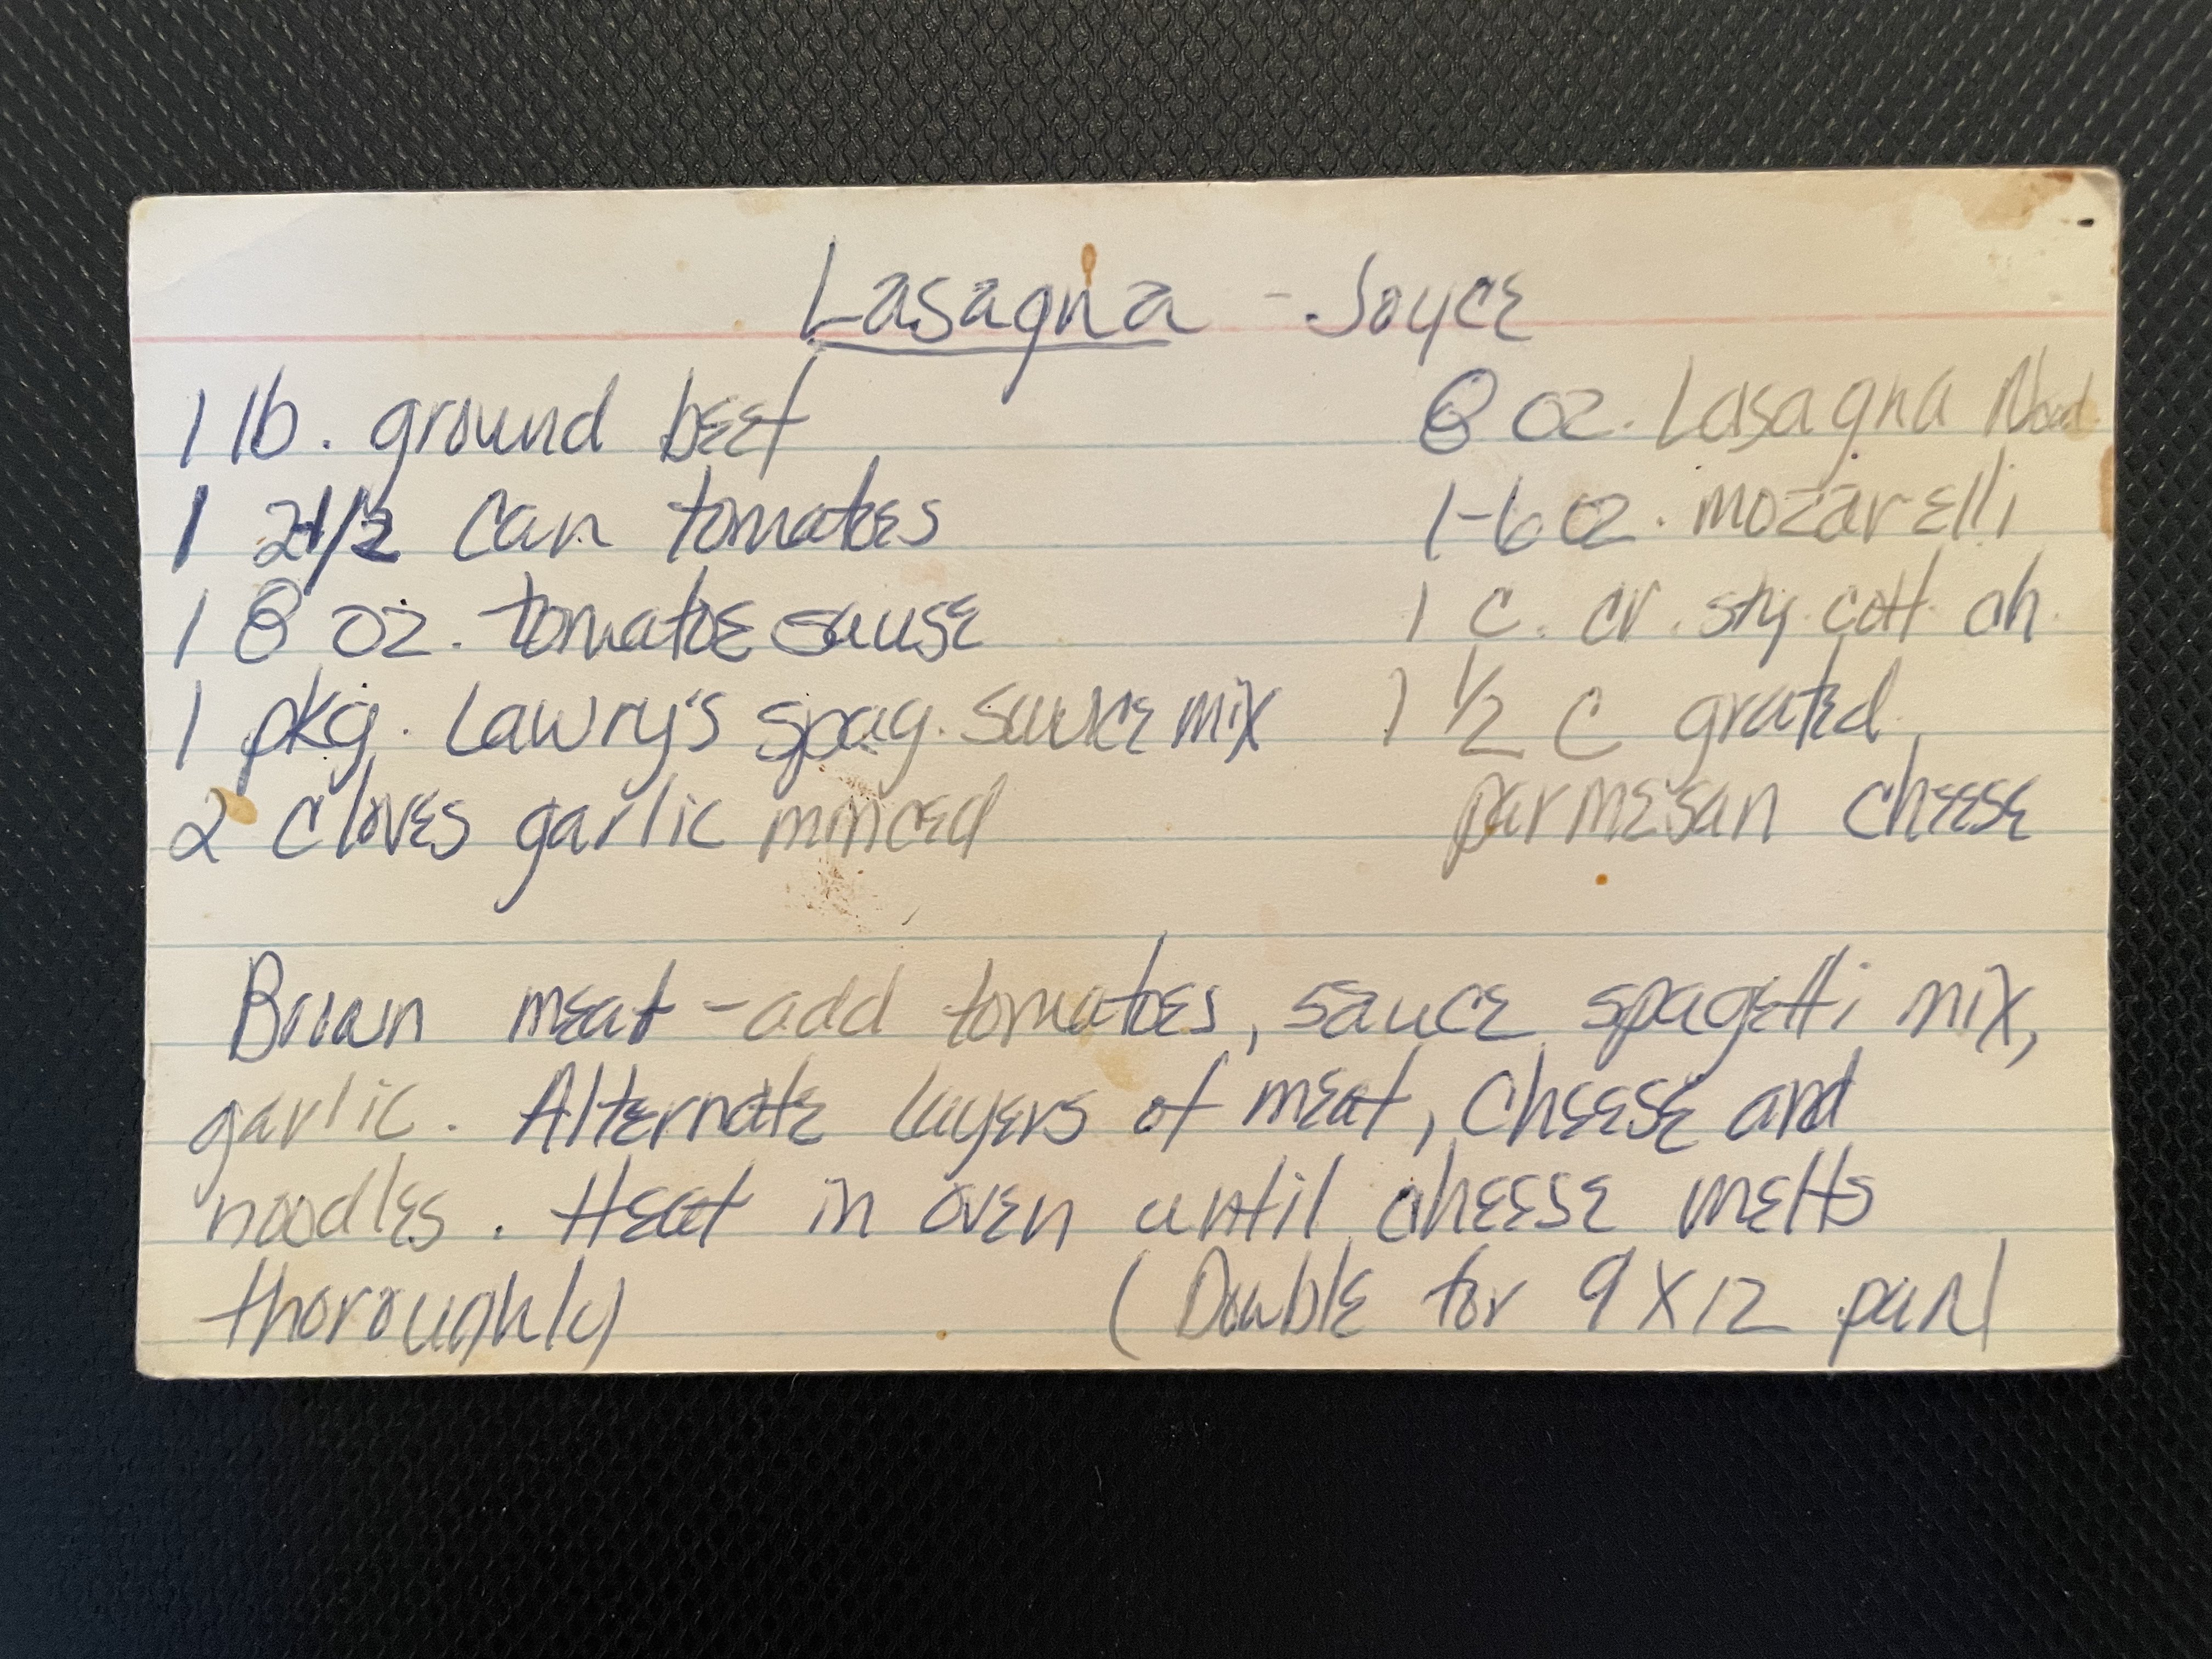 Lasagna - Joyce
1 lb. ground beef
1 2 1/2 can tomatoes
1 8 oz. tomatoe sause
1 pkg. Lawry's spag. sauce mix
2 cloves garlic minced
8 oz. Lasagna Nood.
1-6 oz. mozarelli
1 c. cr. sty. cott ch.
1 1/2 C grated
parmesan cheese
Brown meat - add tomatoes, sauce spagetti mix,
garlic. Alternate layers of meat, cheese and
noodles. Heat in oven until cheese melts
thoroughly (Double for 9 X 12 pan)